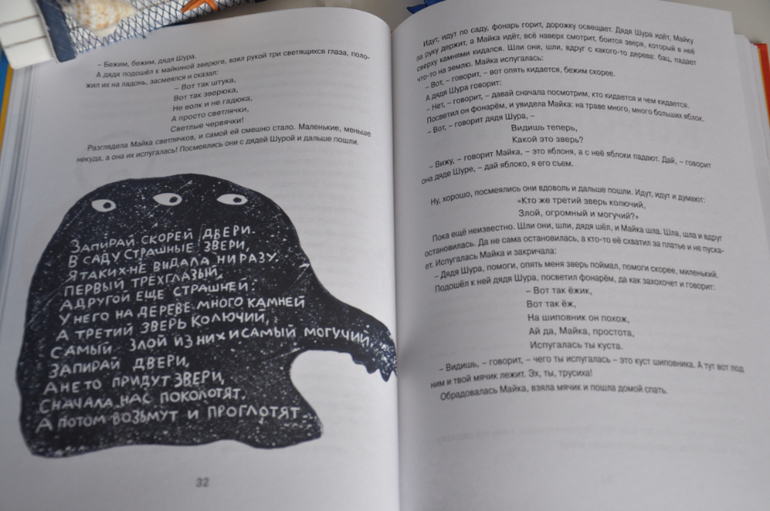 – Бежим, бежим, дядя Шура.
А дядя подошёл к майкиной зверюге, взял рукой три светящихся глаза, поло-
жил их на ладонь, засмеялся и сказал:
– Вот так штука,
Вот так зверюка,
Не волк и не гадюка,
А просто светлячки,
Светлые червячки!
Разглядела Майка светлячков, и самой ей смешно стало. Маленькие, меньше
некуда, а она их испугалась! Посмеялись они с дядей Шурой и дальше пошли.
ЗАПИРАЙ СКОРЕЙ ДВЕРИ.
В САДУ СТРАШНЫЕ ЗВЕРИ,
Я ТАКИХ-НЕ ВИДАЛА НИ РАЗУ.
ПЕРВЫЙ ТРЁХГЛАЗЫЙ,
А ДРУГОЙ ЕЩЕ СТРАШНЕЙ:
У НЕГО НА ДЕРЕВЕ МНОГО КАМНЕЙ
А ТРЕТИЙ ЗВЕРЬ КОЛЮЧИЙ,
САМЫЙ ЗЛОЙ ИЗ НИХ И САМЫЙ МОГУЧИЙ,
ЗАПИРАЙ ДВЕРИ,
А НЕ ТО ПРИДУТ ЗВЕРИ,
СНАЧАЛА НАС ПОКОЛОТЯТ,
А ПОТОМ ВОЗЬМУТ И ПРОГЛОТЯТ
32
Идут, идут по саду, фонарь горит, дорожку освещает. Дядя Шура идёт, Майку
за руку держит, а Майка идёт, всё наверх смотрит, боится зверя, который в неё
сверху камнями кидался. Шли они, шли, вдруг с какого-то дерева: бац, падает
что-то на землю. Майка испугалась:
– Вот, – говорит, – вот опять кидается, бежим скорее.
А дядя Шура говорит:
– Нет, – говорит, – давай сначала посмотрим, кто кидается и чем кидается.
Посветил он фонарём, и увидела Майка: на траве много, много больших яблок.
– Вот, – говорит дядя Шура, –
Видишь теперь,
Какой это зверь?
– Вижу, – говорит Майка, – это яблоня, а с неё яблоки падают. Дай, – говорит
она дяде Шуре, – дай яблоко, я его съем.
Ну, хорошо, посмеялись они вдоволь и дальше пошли. Идут, идут и думают:
«Кто же третий зверь колючий,
Злой, огромный и могучий?»
Пока ещё неизвестно. Шли они, шли, дядя шёл, и Майка шла. Шла, шла и вдруг
остановилась. Да не сама остановилась, а кто-то её схватил за платье и не пуска-
ет. Испугалась Майка и закричала:
– Дядя Шура, помоги, опять меня зверь поймал, помоги скорее, миленький.
Подошёл к ней дядя Шура, посветил фонарём, да как захохочет и говорит:
– Вот так ёжик,
Вот так ёж,
На шиповник он похож,
Ай да, Майка, простота,
Испугалась ты куста.
– Видишь, – говорит, – чего ты испугалась – это куст шиповника. А тут вот под
ним и твой мячик лежит. Эх, ты, трусиха!
Обрадовалась Майка, взяла мячик и пошла домой спать.